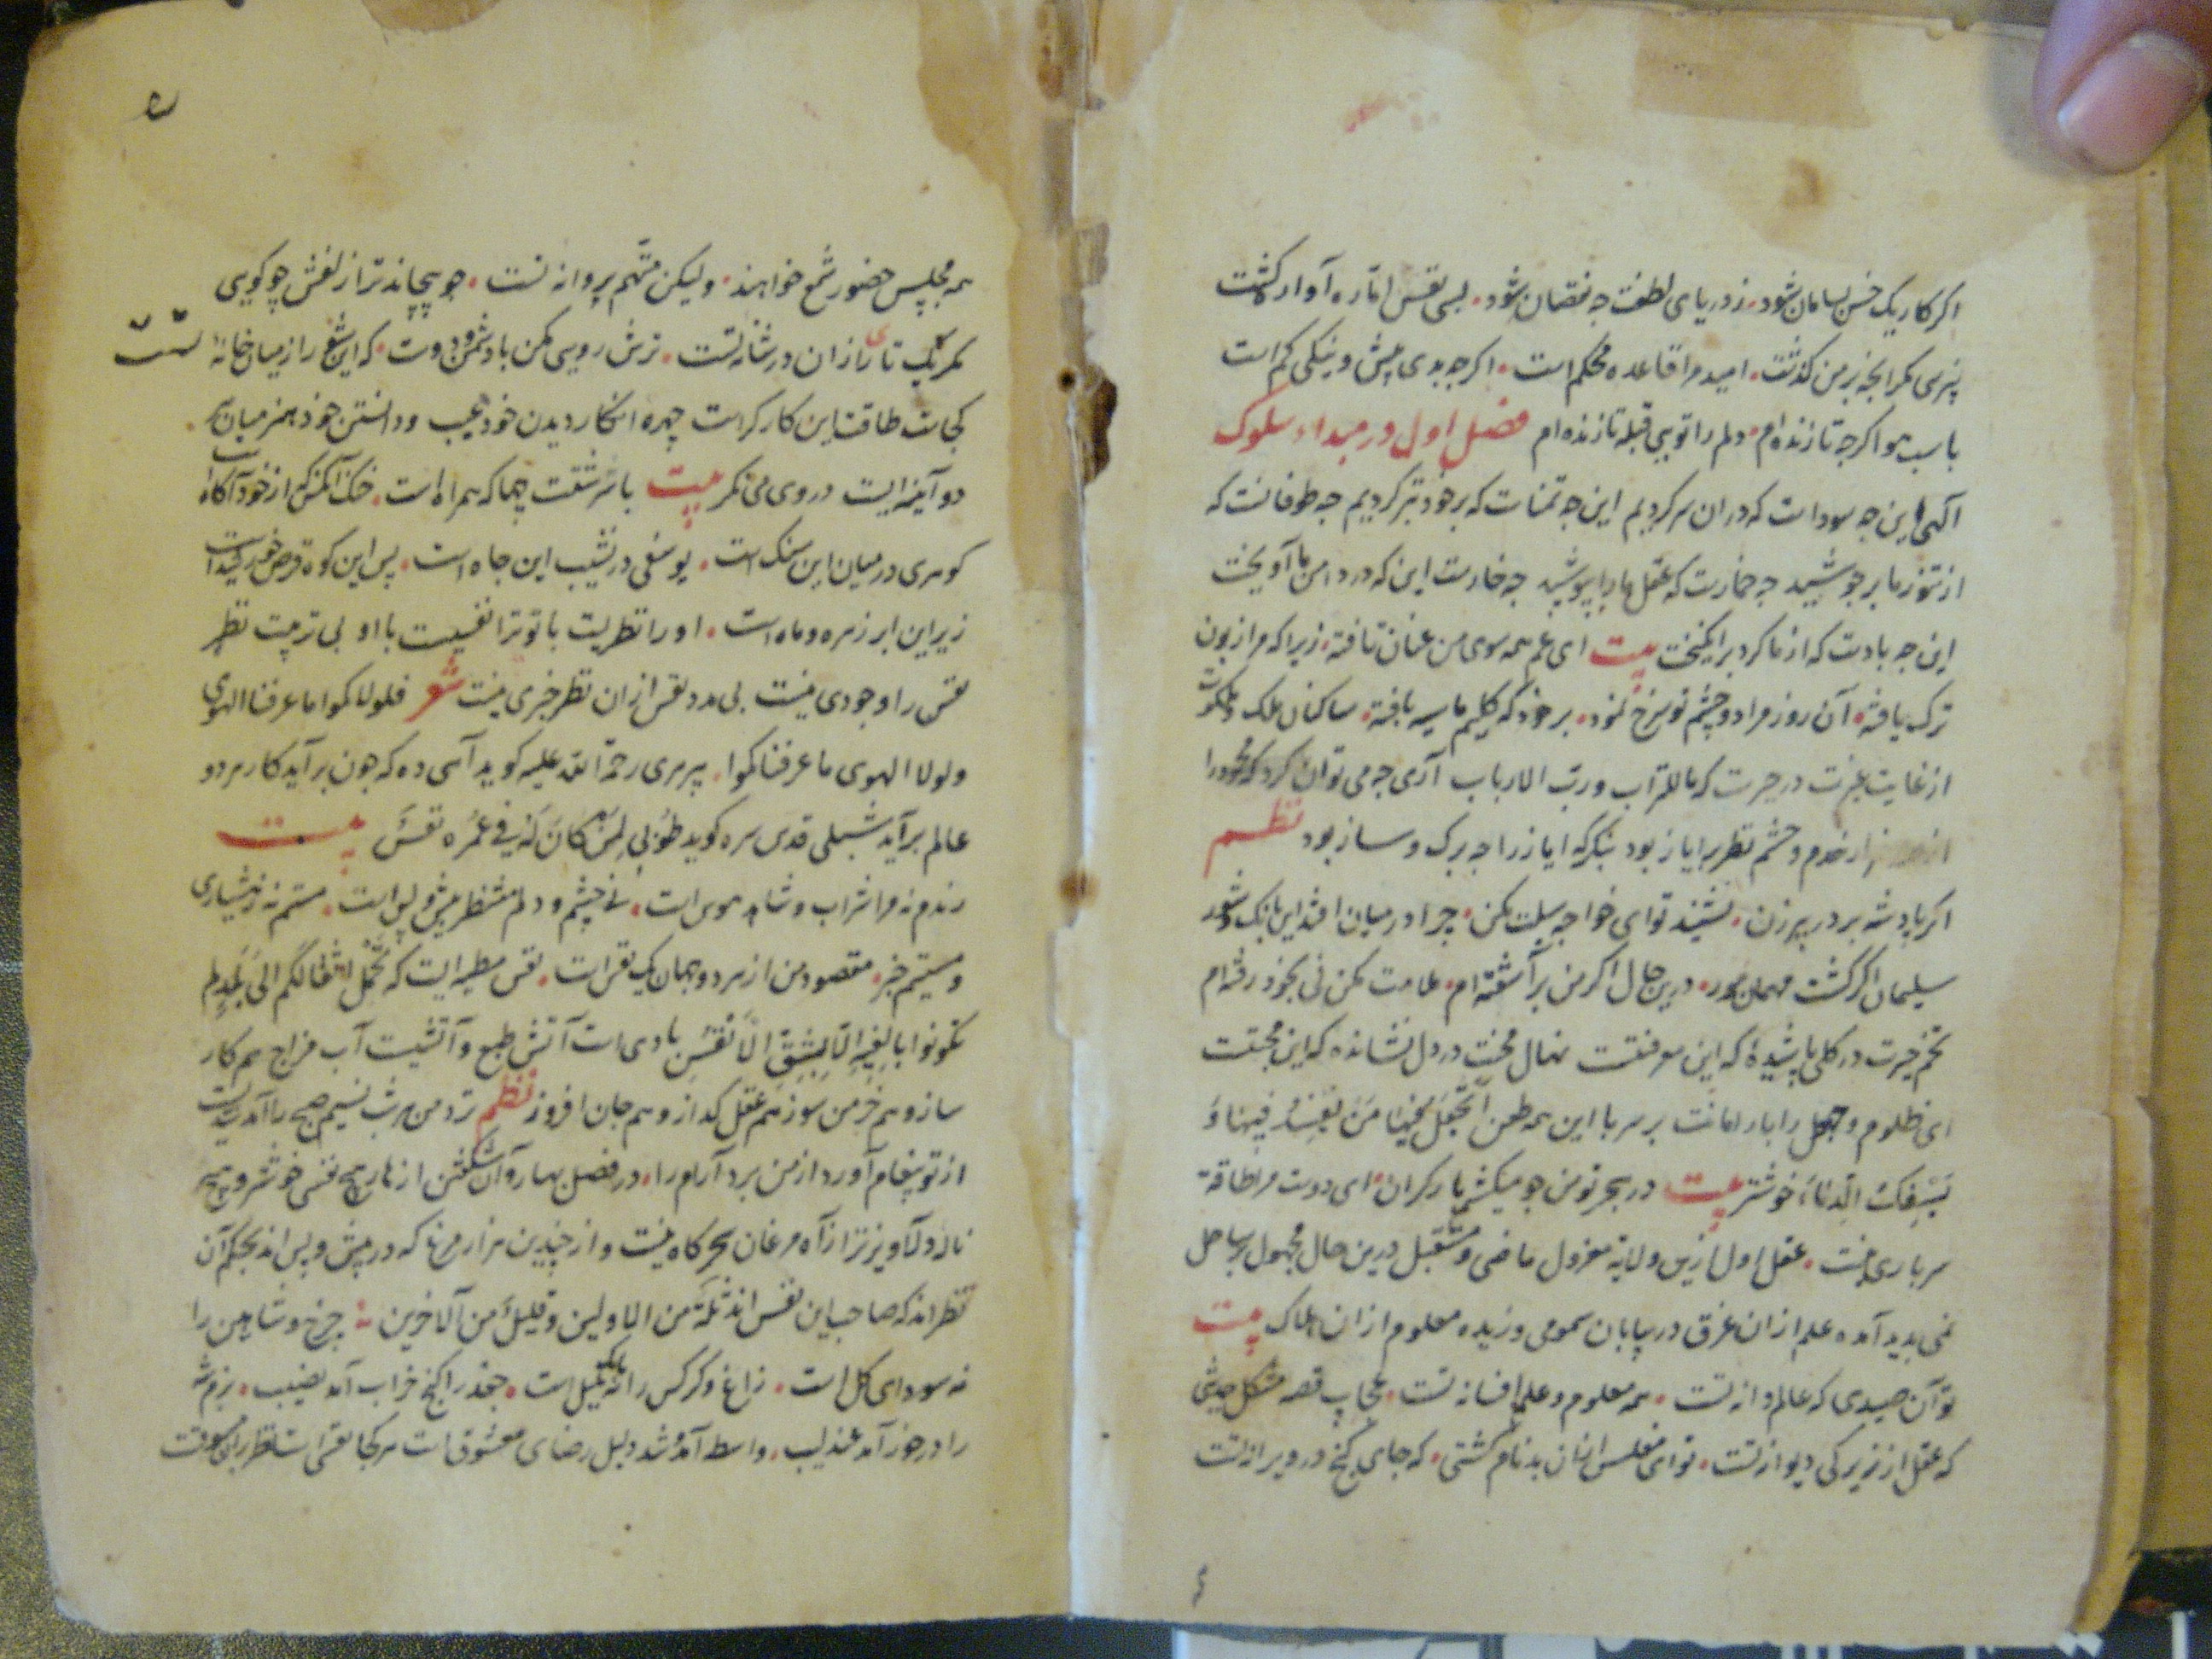 اکر کار یک خس بسامان شود۰ ز دریای لطفت چه نقصان شود۰ بسی نفس اماره آواره کشت
امید مرا قاعده محکم است۰ اکرچه بدی پیش و نیکی کم است
اکرچه تا زنده‌ام۰ دلم را تویی قبله تا زنده‌ام فصل اول در مبداء سلوک
الهی این چه سوداست که در ان سر کردیم این چه تمناست که بر خود تبر کردیم چه طوفانست که
از تنور ما بر جوشید چه خمارست که عقل ما را بپوشید چه خارست این که در دامن ما آویخت
این چه بادست که از ما کرد بر انکیخت بیت ای غم همه سوی من عنان تافته۰ زیرا که مرا زبون
ترک یافته۰ آن روز مرا دو چشم تو رخ نمود۰ بر خود که کلیم ما سیه بافته۰ ساکنان ملک و ملکوت
از غایت غیرت در حیرت که ما للتراب و رب الارباب آری چه می توان کرد که محمود را
خدم و حشم نظر بر ایاز بود بنکر که ایاز را چه برک و ساز بود نظم
اکر پادشه بر در پیر زن۰ نشیند تو ای خواجه سبلت مکن۰ چرا در میان افتد این بانک و شور
سلیمان اکر کشت مهمان مور۰ درین حال اکر من بر آشفته‌ام۰ ملامت مکن نی بخود رفته‌ام
تخم حیرت در کلی پاشیدهٔ که این معرفتست نهال محنت در دل نشانده که این محبتست
ای ظلوم و جهول را بار امانت بر سر با این همه طعن اَتَجْعَلُ فِیهَا مَنْ یُفْسِدُ فِیهَا وَ
یَسْفِکُ الدِّمَاءَ خوشتر بیت در بحر تو من چو میکشم بار کران۰ ای دوست مرا طاقة
سرباری نیست۰ عقل اول ازین ولایة معزول ماضی و مستقبل درین حال مجهول بر ساحل
نمی بدید آمده علم از ان غرق در بیابان سمومی وزیده معلوم ازان هلاک بیت
تو آن صیدی که عالم دانه تست۰ همه معلوم و علم افسانه تست۰ عجایب قصه مشکل حدیثی
که عقل از زیرکی دیوانه تست۰ تو ای مفلس ازان بدنام کشتی۰ که جای کنج در ویرانه تست
٤
۵
همه مجلس حضور شمع خواهند۰ ولیکن متهم پروانه تست۰ چو پیچاند ترا زلفش چو کویی
مکر یک تای زان در شانه تست۰ ترش رویی مکن با دشمن و دوست۰ که این شور از میان خانهٔ تست
کجاست طاقت این کار کراست چهره انکار دیدن خود عیب و دانستن خود هنر میان
دو آینه ایست در وی می نکر بیت با سرشتت چها که همراه است۰ خنک آنکس که از خود آکاه است
کوهری در میان این سنک است۰ یوسفی در نشیب این چاه است۰ پس این کوه قرص خورشید است
زیر این ابر زهره و ماه است۰ او را نظریست با تو ترا نفسیست با او بی تربیت نظر
نفس را وجودی نیست بی مدد نفس از ان نظر خبری نیست شعر فلولاکموا ما عرفنا الهوی
ولولا الهوی ما عرفناکموا۰ پیر هری رحمة الله علیه کوید آهی ده که چون بر آید کار هر دو
عالم بر آید شبلی قدس سره کوید طُوبی لِمَنْ کَانَ لَهُ فی عُمُره نَفَسٌ بیت
رندم نه مرا شراب و شاهد هوس است۰ نی چشم و دلم منتظر پیش و پس است۰ مستم نه ز هشیاری
و مستیم خبر۰ مقصود من از هر دو جهان یک نفس است۰ نفس مطیه ایست که تَحْمِلُ اَثْقَالَکُمْ اِلیٰ بَلَدٍ لَم
تَکُونُوا بَالِغِیهِ اِلّا بِشِقِّ الْاَنْفُسِ بادی است آتش طبع و آتشیست آب مزاج هم کار
ساز و هم خرمن سوز هم عقل کداز و هم جان افروز نظم نزد من هر شب نسیم صبح را آمد شدیست
از تو پیغام آورد از من برد آرام را۰ در فصل بهار و آن شکفتن ازهار هیچ نفسی خوشتر و هیچ
نالهٔ دلاویزتر از آه مرغان سحرکاه نیست و از چندین هزار مرغ که در پیش و پس اند بحکم آن
نظر اند که صاحب این نفس اند ثُلَّةٌ من الاولین و قلیلٌ من الآخرین چرخ و شاهین را
نه سودای کل است۰ زاغ و کرکس را نه بانک بلبل است۰ جغد را کنج خراب آمد نصیب۰ بزم شه
را در خور آمد عندلیب۰ واسطهٔ آمد شد دلیل رضای معشوقست هر کجا نفس است نظر را